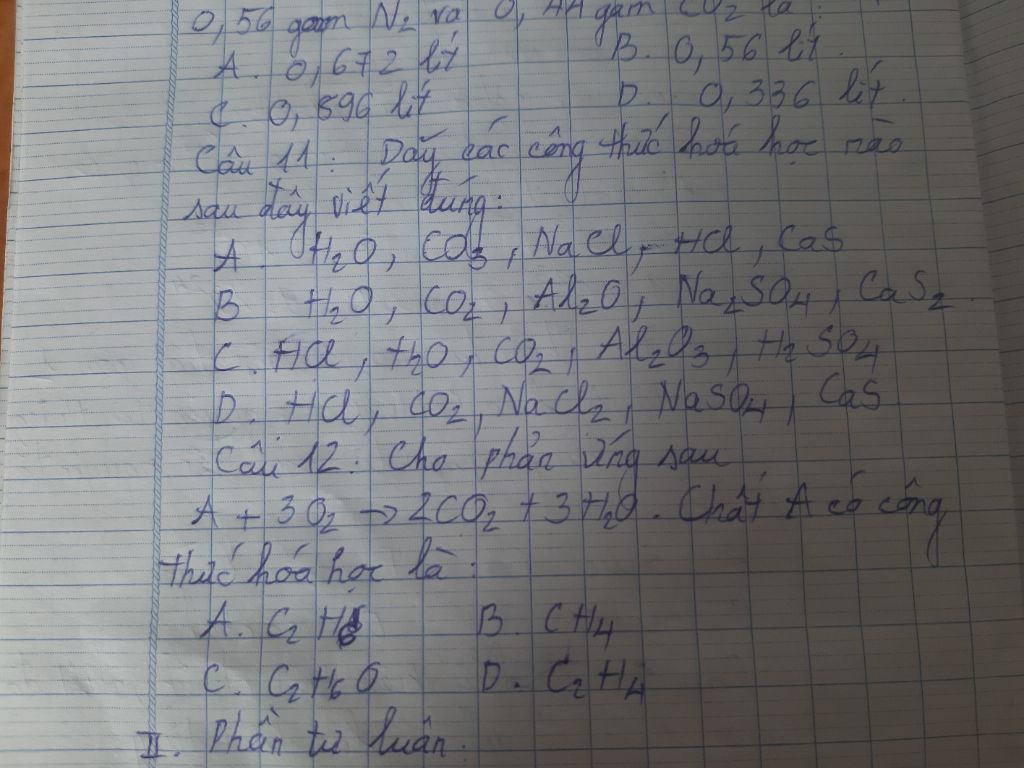 0,56 gam N2 và 0,44 gam CO2 là:
A. 0,672 lít B. 0,56 lít.
C. 0,896 lít D. 0,336 lít.
Câu 11: Dãy các công thức hoá học nào
sau đây viết đúng:
A. H2O, CO3, NaCl, HCl, CaS
B H2O, CO2, Al2O, Na2SO4, CaS2.
C. HCl, H2O, CO2, Al2O3, H2SO4
D. HCl, CO2, NaCl2, NaSO4, CaS
Câu 12. Cho phản ứng sau
A + 3O2 → 2CO2 + 3H2O. Chất A có công
thức hóa học là:
A. C2H6 B. CH4
C. C2H6O D. C2H4
II. Phần tự luận.